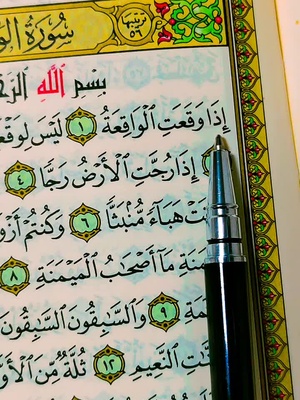 ترتيبها ٥٦
سُورَةُ الو
بِسْمِ ٱللَّهِ ٱلرَّح
إِذَا وَقَعَتِ ٱلْوَاقِعَةُ ١ لَيْسَ لِوَقْعَ
إِذَا رُجَّتِ ٱلْأَرْضُ رَجًّا ٤
هَبَآءً مُّنۢبَثًّا ٦ وَكُنتُمْ أَزْوَ
نَةِ مَآ أَصْحَٰبُ ٱلْمَيْمَنَةِ ٨
مَةِ ٩ وَٱلسَّٰبِقُونَ ٱلسَّٰبِقُونَ
تِ ٱلنَّعِيمِ ١٢ ثُلَّةٌ مِّنَ ٱلْأَوَّ